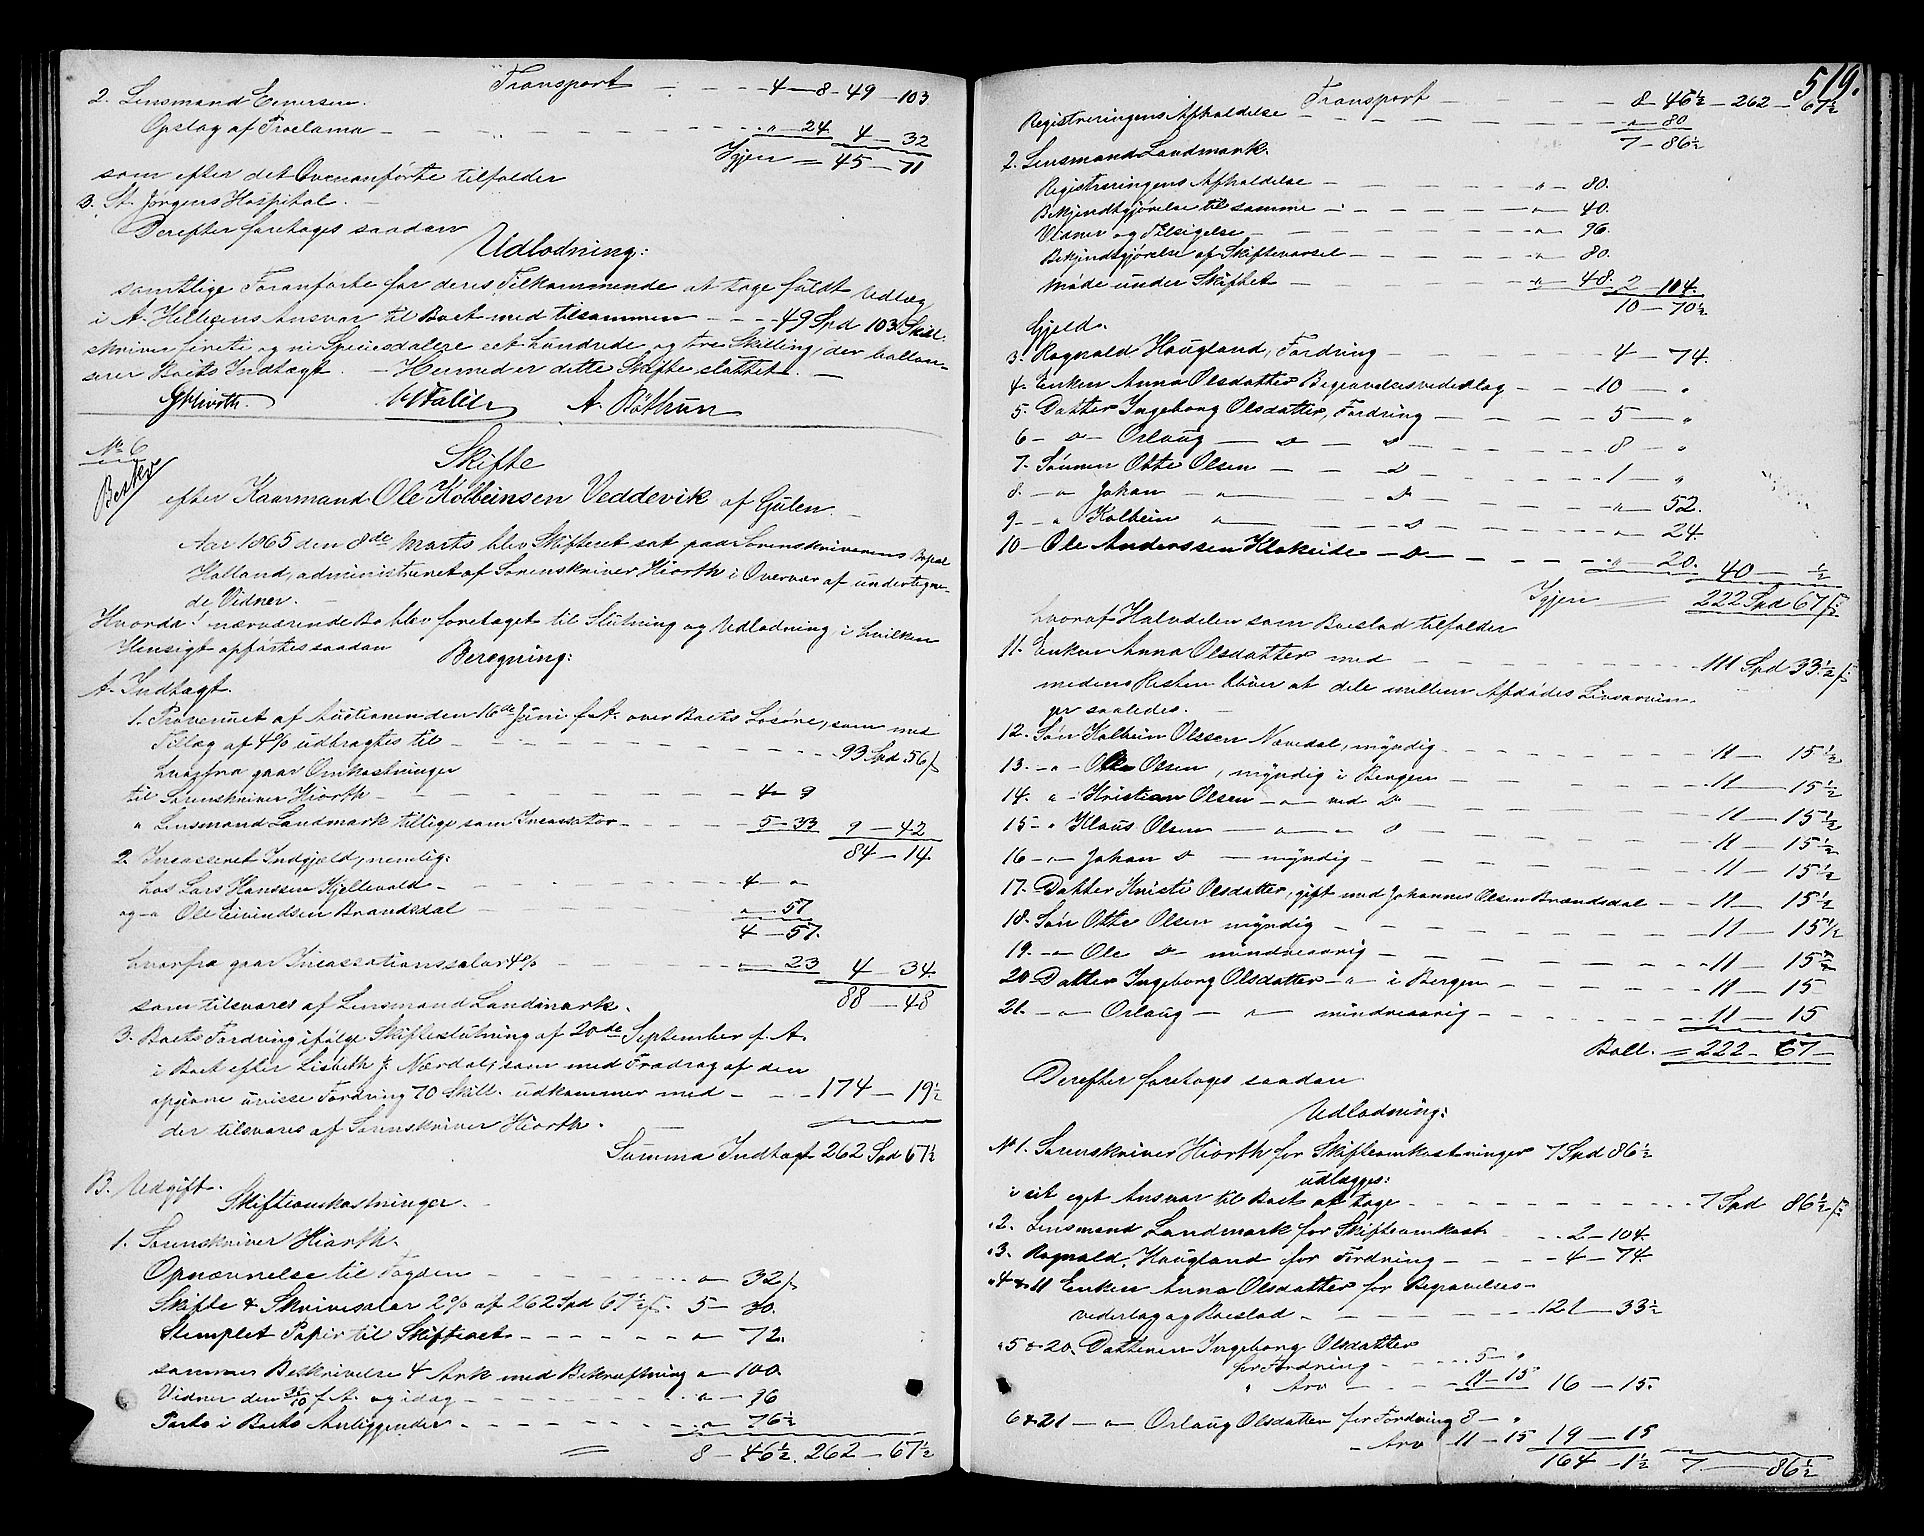 Transport - - - 4 - 8 - 49 - 103
2. Lensmand Einersen.
Opslag af Proclama - - - „ - 24 4 - 32
Igjen = 45 - 71
som efter det Ovenanførte tilfalder
3. St. Jørgens Hospital.
Derefter foretoges saadan
Udlodning:
samtlige Foranførte for deres Tilkommende at tage fuldt Udlæg
i A. Hellesens Ansvar til Boet med tilsammen - - - 49 Spd 103 Skill.
skriver fireti og ni Speciesdalere eet hundrede og tre Skilling, der ballan-
serer Boets Indtægt. - Hermed er dette Skifte sluttet. -
Hiorth. A. Böthun
No 6
Beskr
Skifte
efter Kaarmand Ole Kolbeinsen Veddevik af Gulen.
Aar 1865 den 8de Marts blev Skifteret sat paa Sorenskriverens Bopæl
Holland, administreret af Sorenskriver Hiorth i Overvær af undertegne-
de Vidner.
Hvorda! nærværende Bo blev foretaget til Slutning og Udlodning, i hvilken
Hensigt opførtes saadan
Beregning:
A. Indtægt.
1. Provenuet af Auctionen den 16de Juni f. A. over Boets Løsøre, som med
Tillæg af 4% udbragtes til - - - 93 Spd 56 ß
hvorfra gaar Omkostninger
til Sorenskriver Hiorth - - - 4 - 9
„ Lensmand Landmark tillige som Incassator - - 5 - 33 9 - 42
84 - 14
2. Incasseret Indgjæld, nemlig:
hos Lars Hanssen Kjellevold - - - 4 - „
og „ Ole Eivindsen Brandsdal - - „ - 57
4 - 57.
hvorfra gaar Incassationssalar 4% - - „ - 23 4 - 34.
88 - 48
som tilsvares af Lensmand Landmark.
3. Boets Fordring ifølge Skifteslutning af 20de September f. A.
i Boet efter Lisbeth J. Nærdal, som med Fradrag af den
opgivne uvisse Fordring 70 Skill. udkommer med - - 174 - 19½
der tilsvares af Sorenskriver Hiorth.
Summa Indtægt 262 Spd 67½
B. Udgift.
Skifteomkostninger.
1. Sorenskriver Hiorth.
Opnævnelse til Fogden - - - „ - 32 ß
Skifte & Skriversalar 2% af 262 Spd 67½ ß. 5 - 30.
Stemplet Papir til Skifteret - - - „ - 72.
sammes Beskrivelse 4 Ark med Bekræftning „ - 100
Vidner den f. A. og idag - - - „ - 96
Porto i Boets Anliggender - - - „ - 76½
= 8 - 46½. 262 - 67½
519.
Transport - - - 8 - 46½ - 262 - 67½
Registreringens Afholdelse - - - „ - 80
7 - 86½
2. Lensmand Landmark.
Registreringens Afholdelse - - - „ - 80.
Bekjendtgjørelse til samme - - - „ - 40.
Vidner og Tilsigelse - - - „ - 96.
Bekjendtgjørelse af Skiftevarsel - - „ - 80.
Møde under Skiftet - - - „ - 48. 2 - 104.
10 - 70½
Gjeld.
3. Rognald Hougland, Fordring - - - 4 - 74.
4. Enken Anna Olsdatter Begravelsesvederlag - - - 10 - „
5. Datter Ingeborg Olsdatter, Fordring - - - 5 - „
6 - do - Orlaug - do - do 8 - „
7. Sønnen Otte Olsen - - do - - 1 - „
8. - „ Johan - „ - do - - „ - 52.
9 - „ Kolbein „ - - do - - „ - 24
10 - Ole Anderssen Klokeide - do - - - „ - 20. 40 - ½
Igjen = 222 Spd 67 ß
hvoraf Halvdelen som Boeslod tilfalder
11. Enken Anna Olsdatter med - - - 111 Spd 33½ ß
medens Resten bliver at dele mellem Afdødes Livsarvin-
ger saaledes.
12. Søn Kolbein Olssen Nævedal, myndig - - - 11 - 15½
13. - „ - Ole Olsen, myndig i Bergen - - - 11 - 15½
14. „ - Kristian Olsen - „ - ved do - - - 11 - 15½
15 - „ Klaus Olsen - „ - „ do - - - 11 - 15½
16 - „ - Johan do - myndig - - - 11 - 15½
17. Datter Kristi Olsdatter, gift med Johannes Olsen Brændsdal - - 11 - 15½
18. Søn Otte Olsen myndig - - - 11 - 15½
19. - „ - Ole do mindreaarig - - - 11 - 15½
20. Datter Ingeborg Olsdatter - „ - i Bergen - - - 11 - 15
21. - „ - Orlaug - „ - mindreaarig - - - 11 - 15
Ball. = 222 - 67 -
Derefter foretoges saadan
Udlodning:
No 1. Sorenskriver Hiorth for Skifteomkostninger 7 Spd 86½
udlægges:
i sit eget Ansvar til Boet at tage - - - 7 Spd 86½ ß
„ 2. Lensmand Landmark for Skifteomkost. - - 2 - 104.
„ 3. Rognald Hougland for Fordring - - - 4 - 74.
„ 4 & 11 Enken Anna Olsdatter for Begravelses-
vederlag og Boeslod - - - 121 - 33½
„ 5 & 20. Datteren Ingeborg Olsdatter
for Fordring - - - 5 - „
„ Arv - - 11 - 15 16 - 15.
6 & 21 - „ - Orlaug Olsdatter for Fordring 8 - „
- Arv 11 - 15 19 - 15
164 - 1½ 7 - 86½